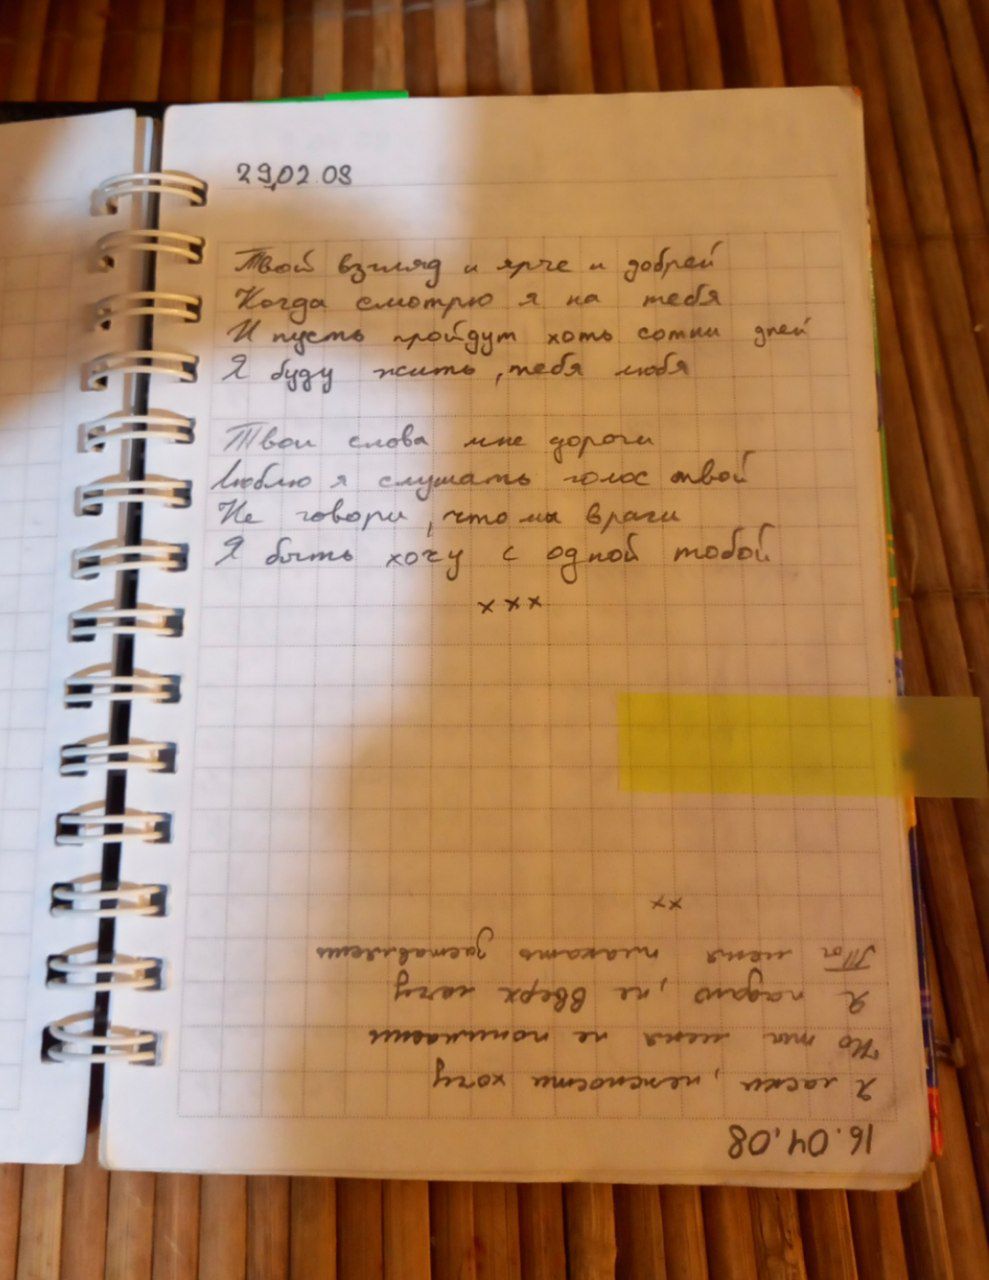 29.02.08
Твой взгляд и ярче и добрей
Когда смотрю я на тебя
И пусть пройдут хоть сотни дней
Я буду жить, тебя любя
Твои слова мне дороги
Люблю я слушать голос твой
Не говори, что мы враги
Я быть хочу с одной тобой
×××
16.04.08
Я ласки, нежности хочу
Но ты меня не понимаешь
Я падаю, не вверх лечу
Ты меня плакать заставляешь
××